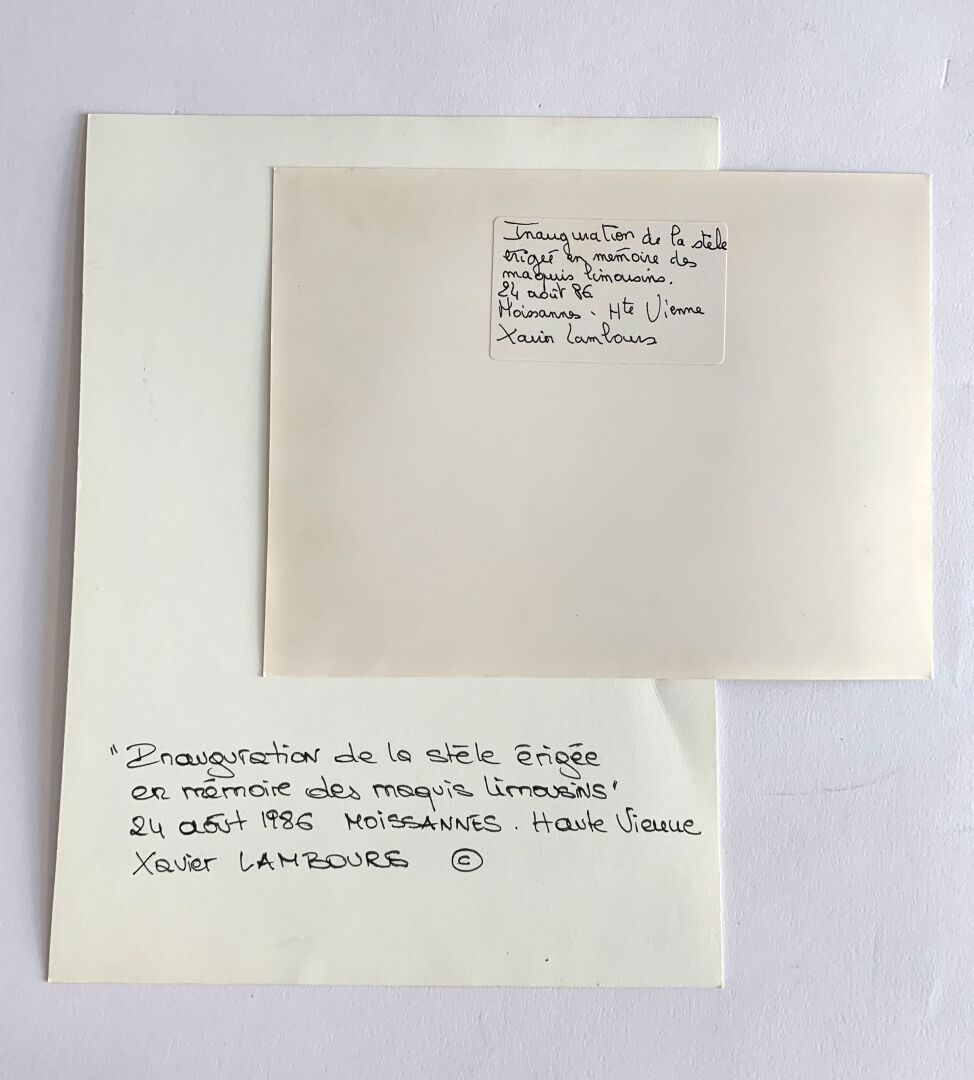 Inauguration de la stèle
érigée en mémoire des
maquis limousins.
24 août 86
Moissannes. Hte Vienne
Xavier Lambours
"Inauguration de la stèle érigée
en mémoire des maquis limousins"
24 août 1986 MOISSANNES. Haute Vienne
Xavier LAMBOURS ©